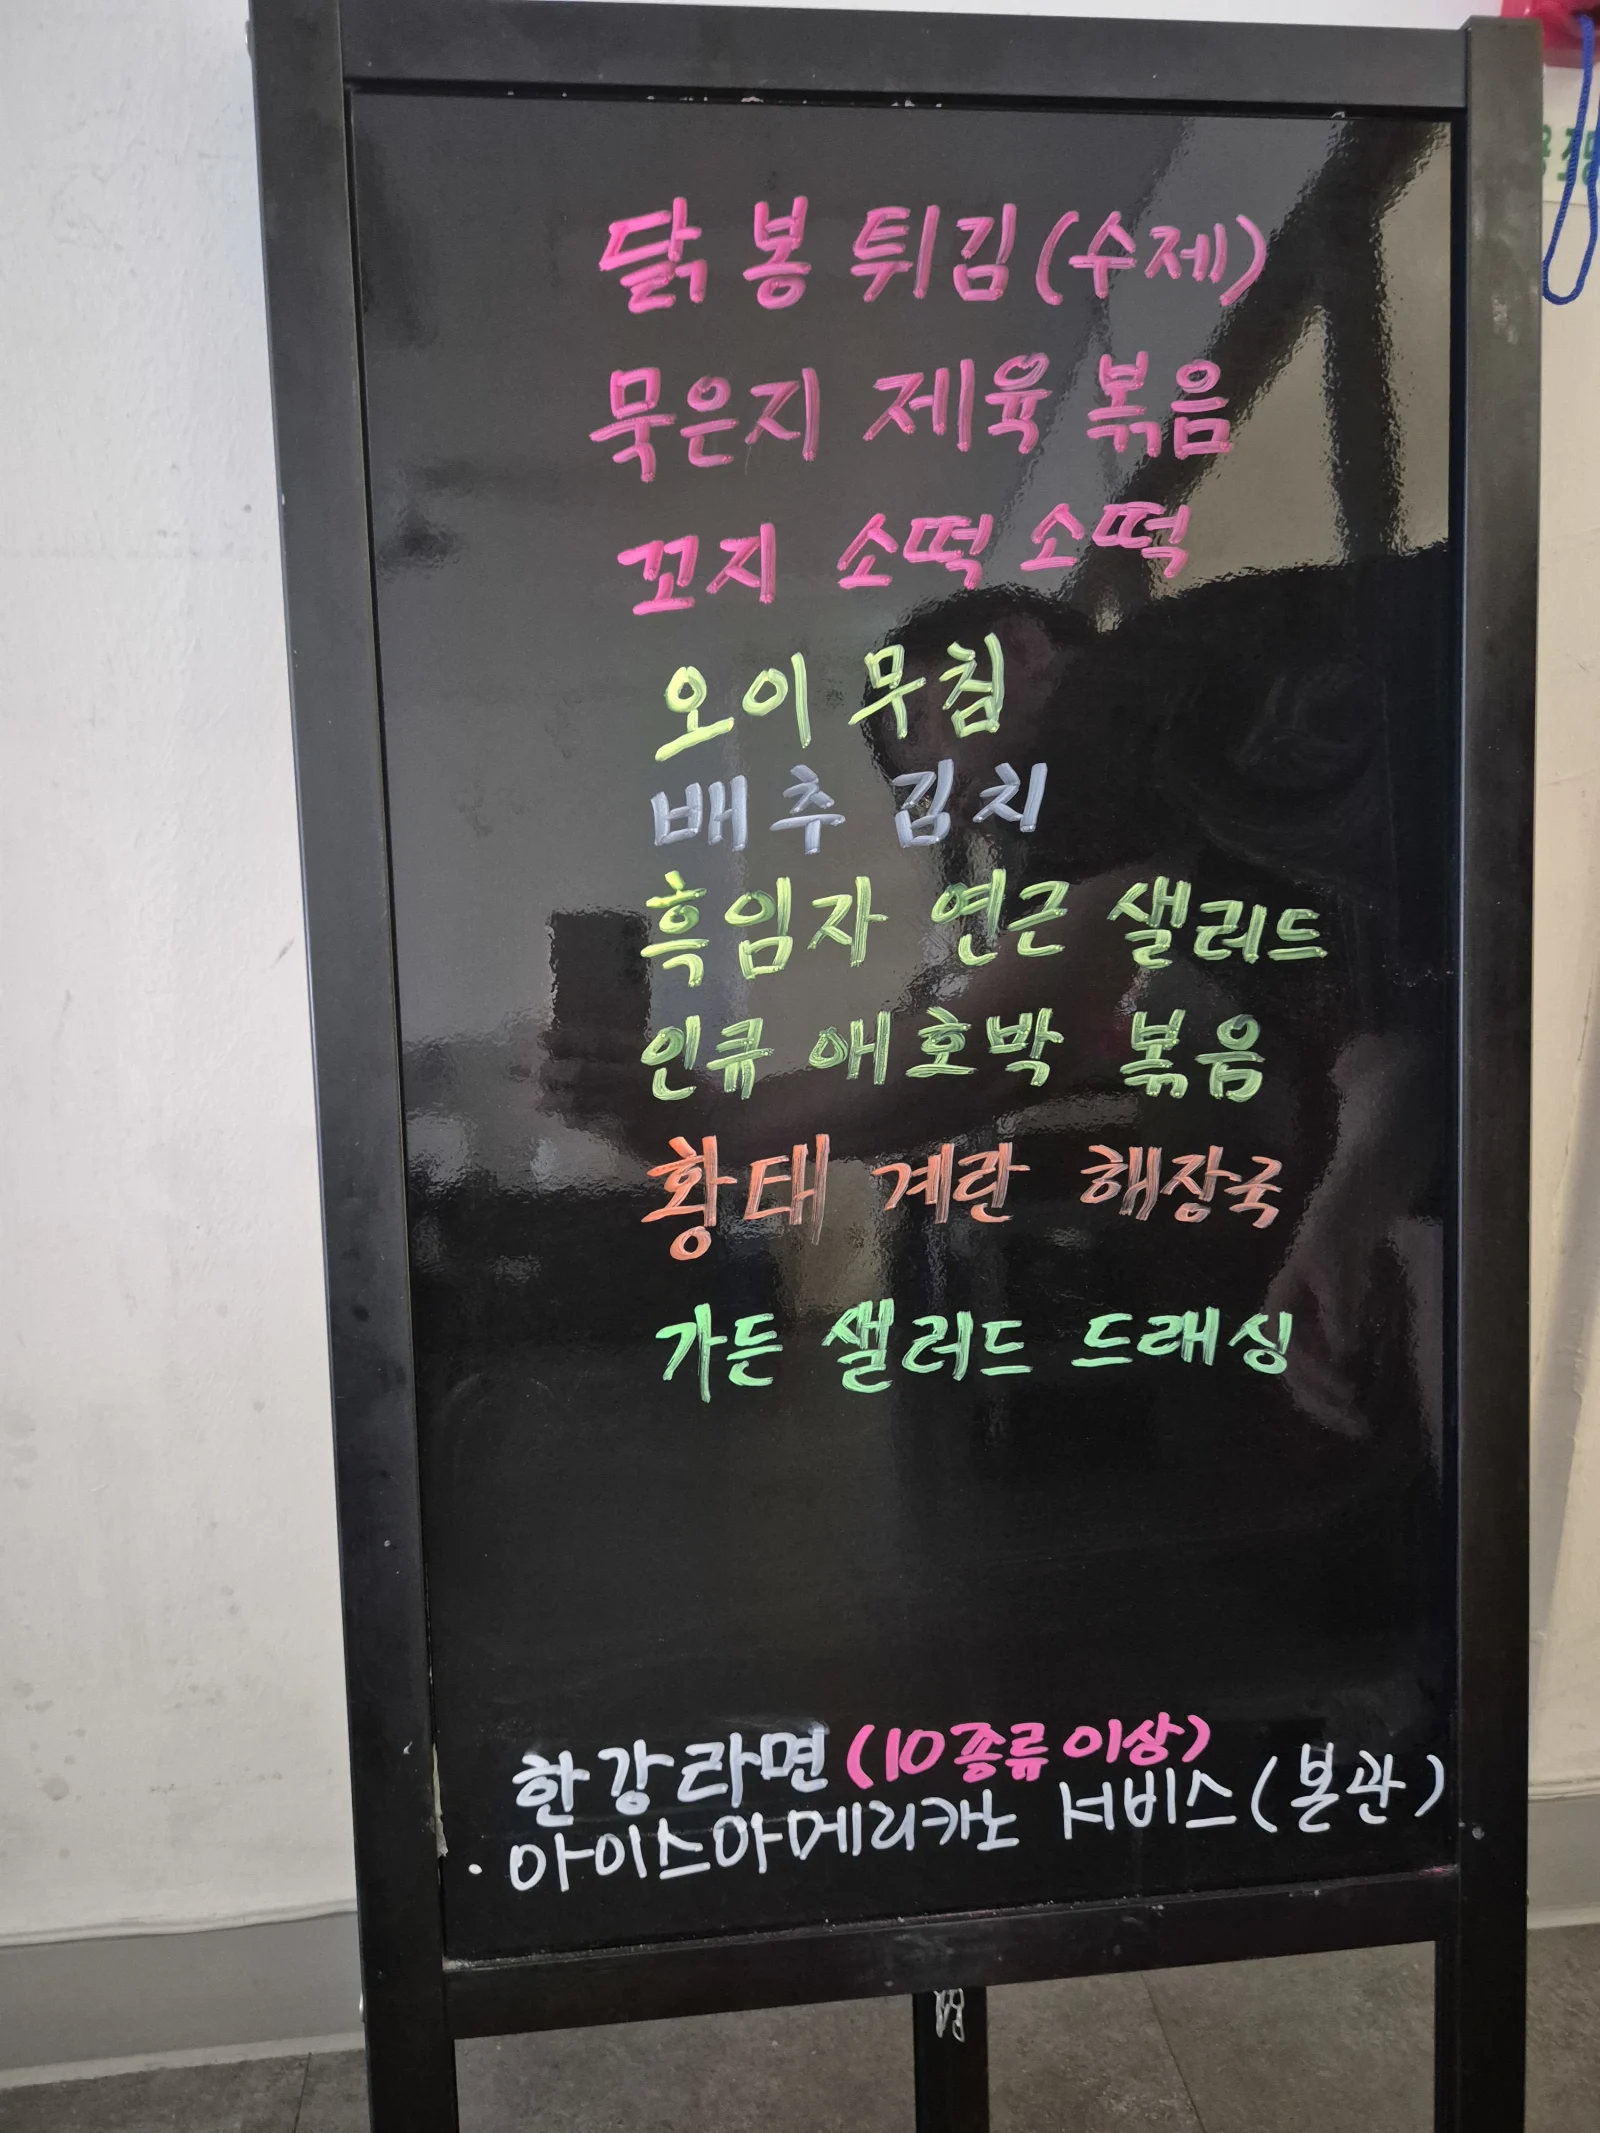 닭봉 튀김(수제)
묵은지 제육 볶음
꼬지 소떡소떡
오이 무침
배추 김치
흑임자 연근 샐러드
인큐 애호박 볶음
황태 계란 해장국
가든 샐러드 드래싱
한강라면(10종류이상)
·아이스아메리카노 서비스(본관)